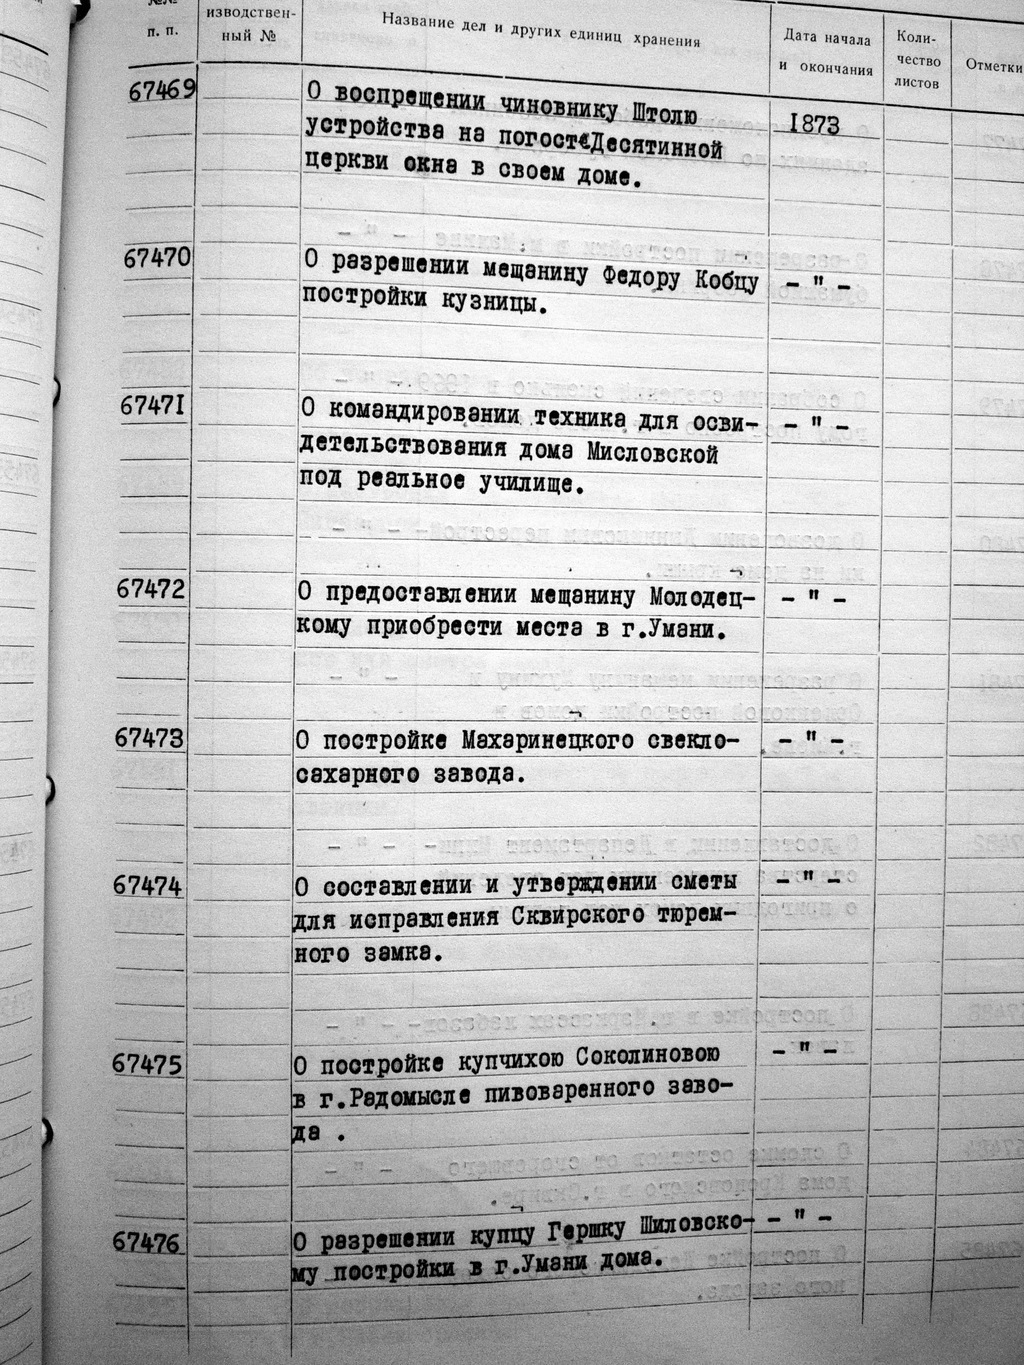 №№
п. п.
изводствен-
ный №
Название дел и других единиц хранения
Дата начала
и окончания
Коли-
чество
листов
Отметки
67469
О воспрещении чиновнику Штолю
1873
устройства на погосте Десятинной
церкви окна в своем доме.
67470
О разрешении мещанину Федору Кобцу
- " -
постройки кузницы.
67471
О командировании техника для осви-
- " -
детельствования дома Мисловской
под реальное училище.
67472
О предоставлении мещанину Молодец-
- " -
кому приобрести места в г.Умани.
67473
О постройке Махаринецкого свекло-
- " -
сахарного завода.
67474
О составлении и утверждении сметы
- " -
для исправления Сквирского тюрем-
ного замка.
67475
О постройке купчихою Соколиновою
- " -
в г.Радомысле пивоваренного заво-
да .
67476
О разрешении купцу Гершку Шиловско-
- " -
му постройки в г.Умани дома.